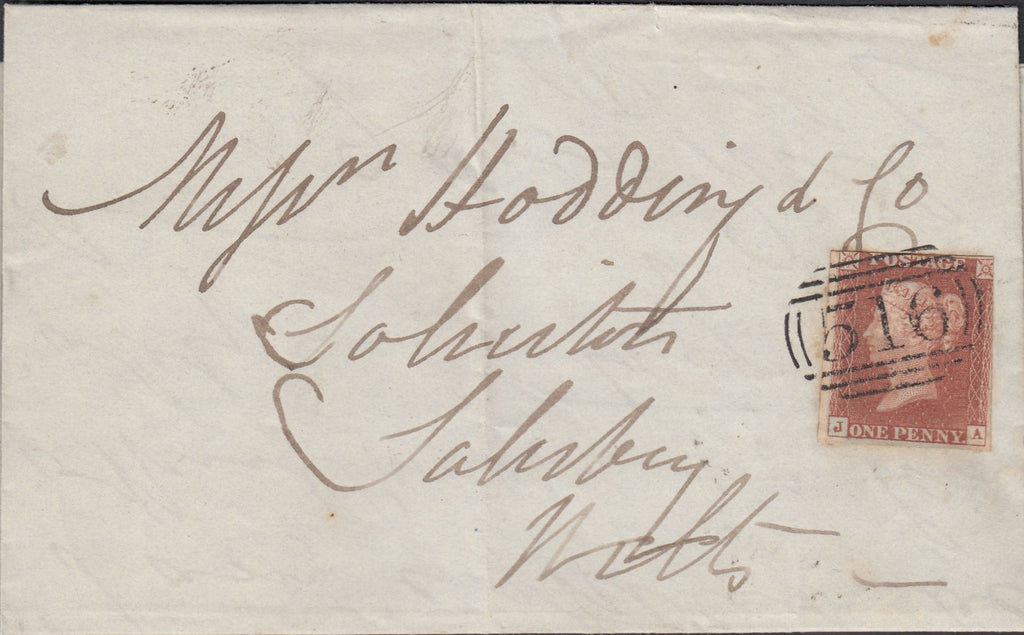 Messrs Hodding & Co
Solicitors
Salisbury
Wilts
POSTAGE
516
J ONE PENNY A